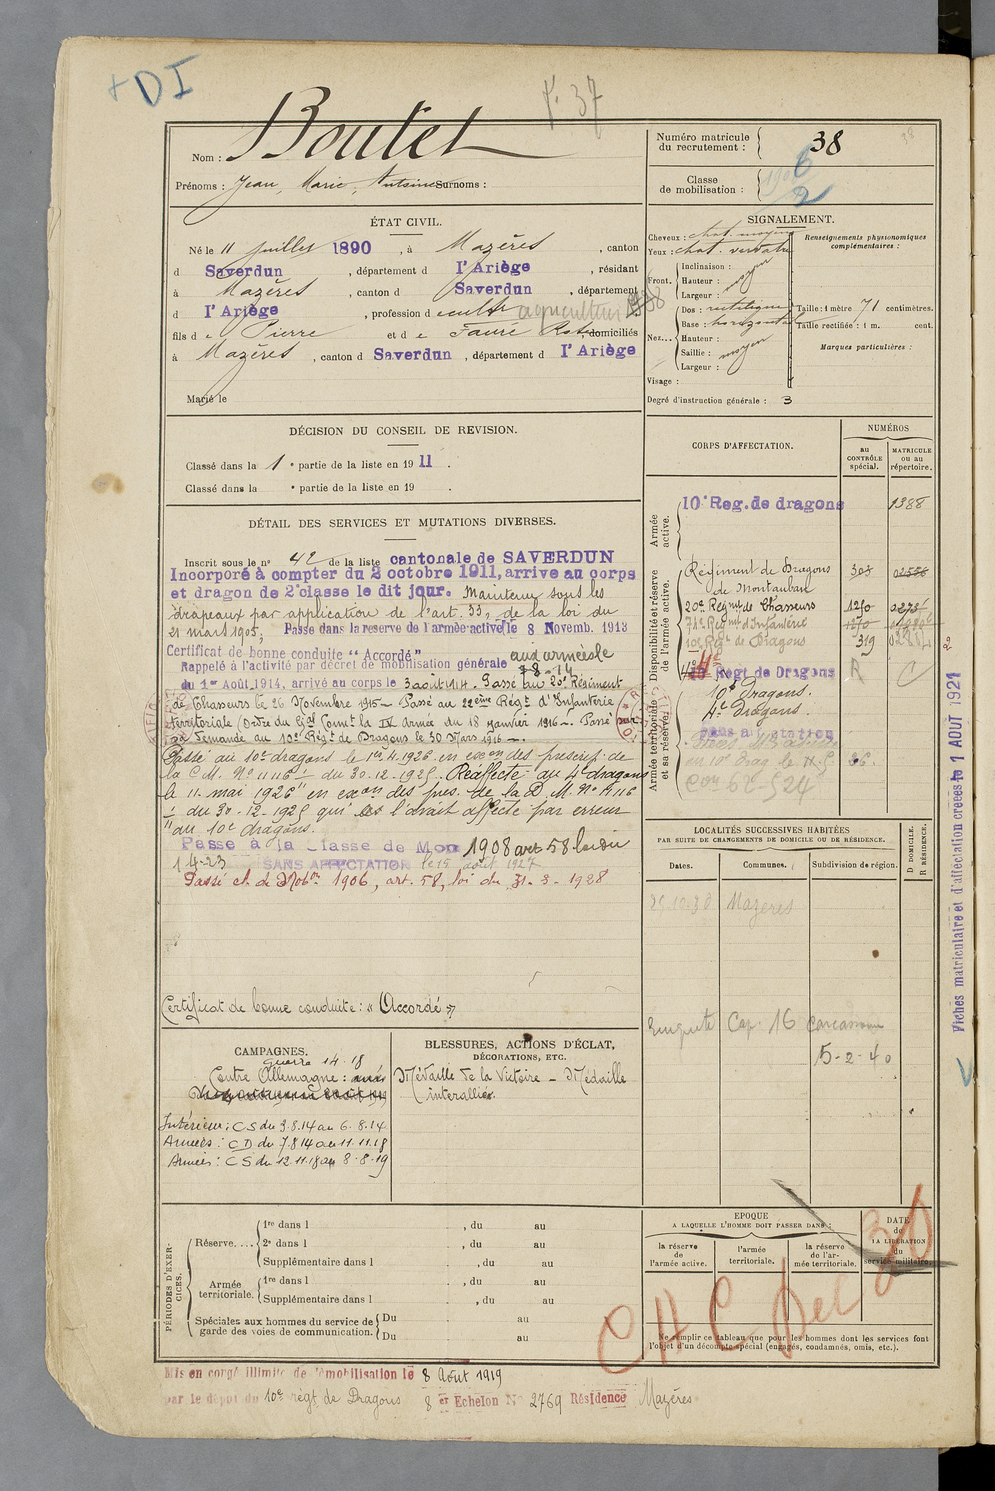 + DI
37
Nom : Boutet
Prénoms : Jean, Marie, Antoine Surnoms :
ÉTAT CIVIL.
Né le 11 juillet 1890, à Mazères, canton
d Saverdun, département d l'Ariège, résidant
à Mazères, canton d Saverdun, département
d l'Ariège, profession d cultr agriculteur
fils d e Pierre et d e Fauré domiciliés
à Mazères, canton d Saverdun, département d l'Ariège
Marié le
DÉCISION DU CONSEIL DE REVISION.
Classé dans la 1e partie de la liste en 1911.
Classé dans la e partie de la liste en 19 .
DÉTAIL DES SERVICES ET MUTATIONS DIVERSES.
Inscrit sous le n° 42 de la liste cantonale de SAVERDUN
Incorporé à compter du 2 octobre 1911, arrive au corps
et dragon de 2e classe le dit jour. Maintenu sous les
drapeaux par application de l'art. 33, de la loi du
21 mars 1905, Passe dans la reserve de l'armée active le 8 Novemb. 1913
Certificat de bonne conduite "Accordé" aux armées le
Rappelé à l'activité par décret de mobilisation générale 7-8-14
du 1er Août 1914, arrivé au corps le 3 août 1914. Passé au 20e Régiment
de Chasseurs le 26 Novembre 1915 — Passé au 22ème Régt d'Infanterie
territoriale (Ordre du Gal Comt la IX Armée du 18 janvier 1916 —. Passé sur
sa demande au 10e Régt de Dragons le 30 Mars 1916 —.
Passé au 10e dragons le 1er 4.1926 en exon des prescript. de
la C.M. N° 1116 1/ du 30.12.1925. Réaffecté au 4e dragons
le 11. mai 1926 en exon des pres. de la D. M. N° 1116
1/ du 30-12-1925 qui les l'avait affecté par erreur
au 10e dragons.
Passé à la Classe de Mon 1908 art 58 loi du
1-4-23 SANS AFFECTATION le 15 août 1927
Passé cl. de Mobon 1906, art. 58, loi du 31-3-1928
Certificat de bonne conduite : « Accordé »
CAMPAGNES.
guerre 14-18
Contre Allemagne :
Intérieur : CS du 3.8.14 au 6.8.14
Armées : CD du 7.8.14 au 11.11.18
Armées : CS du 12.11.18 au 8-8-19
BLESSURES, ACTIONS D'ÉCLAT,
DÉCORATIONS, ETC.
Médaille de la Victoire — Médaille
interalliée
Numéro matricule
du recrutement : 38
Classe
de mobilisation :
6
2
SIGNALEMENT.
Cheveux : chat. moyen
Yeux : chat. verdatre
Front. Inclinaison :
Hauteur : moyen
Largeur :
Nez... Dos : rectiligne
Base : horizontal
Hauteur :
Saillie : moyen
Largeur :
Visage :
Degré d'instruction générale : 3
Renseignements physionomiques
complémentaires :
Taille : 1 mètre 71 centimètres.
Taille rectifiée : 1 m. cent.
Marques particulières :
CORPS D'AFFECTATION.
NUMÉROS
au
CONTRÔLE
spécial.
MATRICULE
ou au
répertoire.
Armée
active.
10e Reg. de dragons 1388
Disponibilité et réserve
de l'armée active.
Régiment de Dragons
de Montauban
20e Regmt de Chasseurs 1270
Regmt d'Infanterie 1270
10e Regt de Dragons 319
4e Régt de Dragons R
Armée territoriale
et sa réserve
10e Dragons.
4e dragons.
sans affectation
LOCALITÉS SUCCESSIVES HABITÉES
PAR SUITE DE CHANGEMENTS DE DOMICILE OU DE RÉSIDENCE.
Dates.
Communes.
Subdivision de région.
D DOMICILE.
R RÉSIDENCE.
Mazères
Enquête Cap. 16 Carcassonne
5-2-40
Fiches matriculaire et d'affectation créées le 1 AOUT 1921
PÉRIODES D'EXER-
CICES.
Réserve....
1re dans l , du au
2e dans l , du au
Supplémentaire dans l , du au
Armée
territoriale.
1re dans l , du au
Supplémentaire dans l , du au
Spéciales aux hommes du service de
garde des voies de communication.
Du au
Du au
EPOQUE
A LAQUELLE L'HOMME DOIT PASSER DANS :
la réserve
de
l'armée active.
l'armée
territoriale.
la réserve
de l'ar-
mée territoriale.
DATE
de
LA LIBÉRATION
du
service militaire.
Ne remplir ce tableau que pour les hommes dont les services font
l'objet d'un décompte spécial (engagés, condamnés, omis, etc.).
Mis en congé illimité de démobilisation le 8 Août 1919
par le dépôt du 10e régt de Dragons 8 er Echelon N° 2769 Résidence Mazères